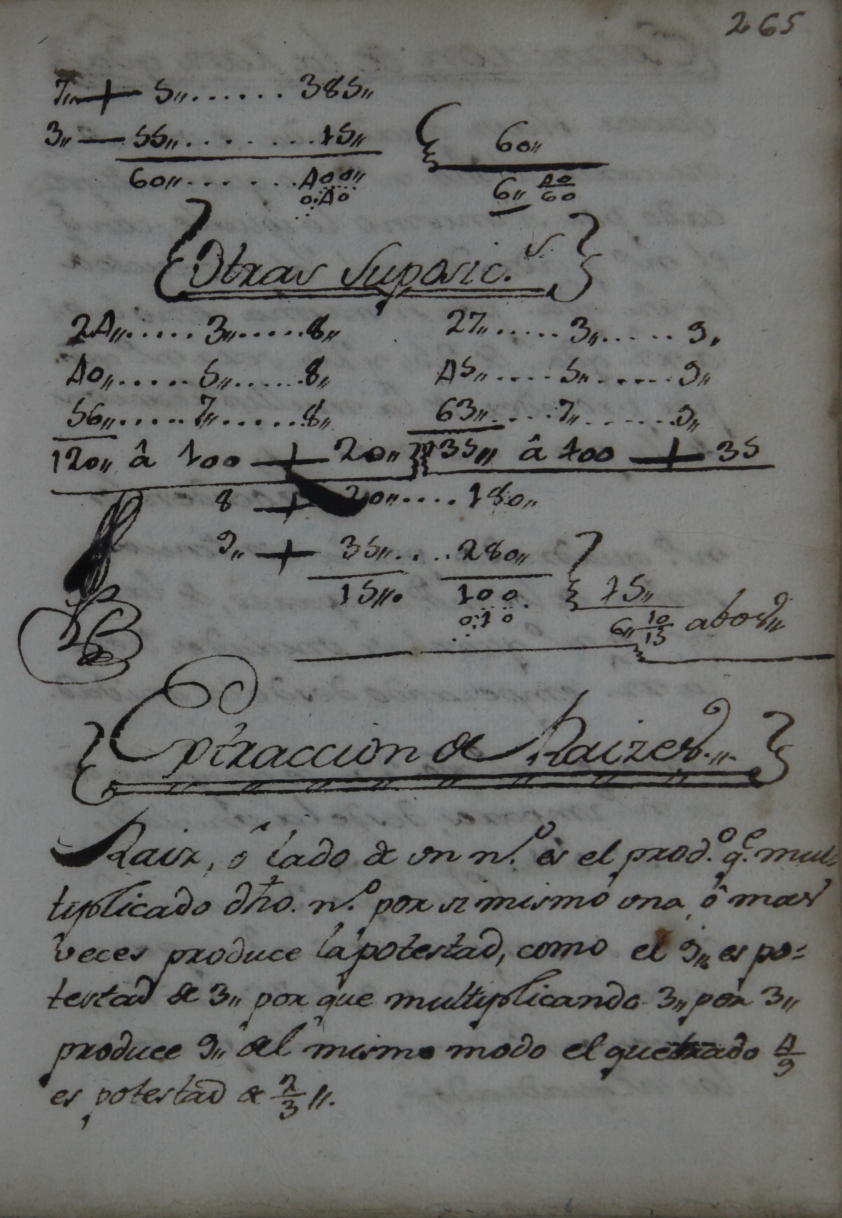 265
7,, + 5,, ...... 385,,
3,, — 55,, ....... 15,,
60,, ...... 400,,
0.40
60,,
6,, 40/60
Otras Suposic.s
24,, ..... 3,, ..... 8,,
40,, ..... 5,, ..... 8,,
56,, ..... 7,, ..... 8,,
120,, â 100 + 20,,
27,, ..... 3,, ..... 9,
45,, .... 5,, ...... 9,,
63,, .... 7,, ...... 9,,
135,, â 100 + 35
8 + 20,, .... 180,,
9,, + 35,, .... 280,,
15,,. 100
0.10
15,,
6,, 10/15
Extraccion de Raizes.,,
Raiz, ô lado de vn n.o es el prod.o q.e mul-
tiplicado dho. n.o por si mismo vna, ô mas
veces produce la potestad, como el 9,, es po=
testad de 3,, por que multiplicando 3,, por 3,,
produce 9,, del mismo modo el quebrado 4/9
es potestad de 2/3 ,,.